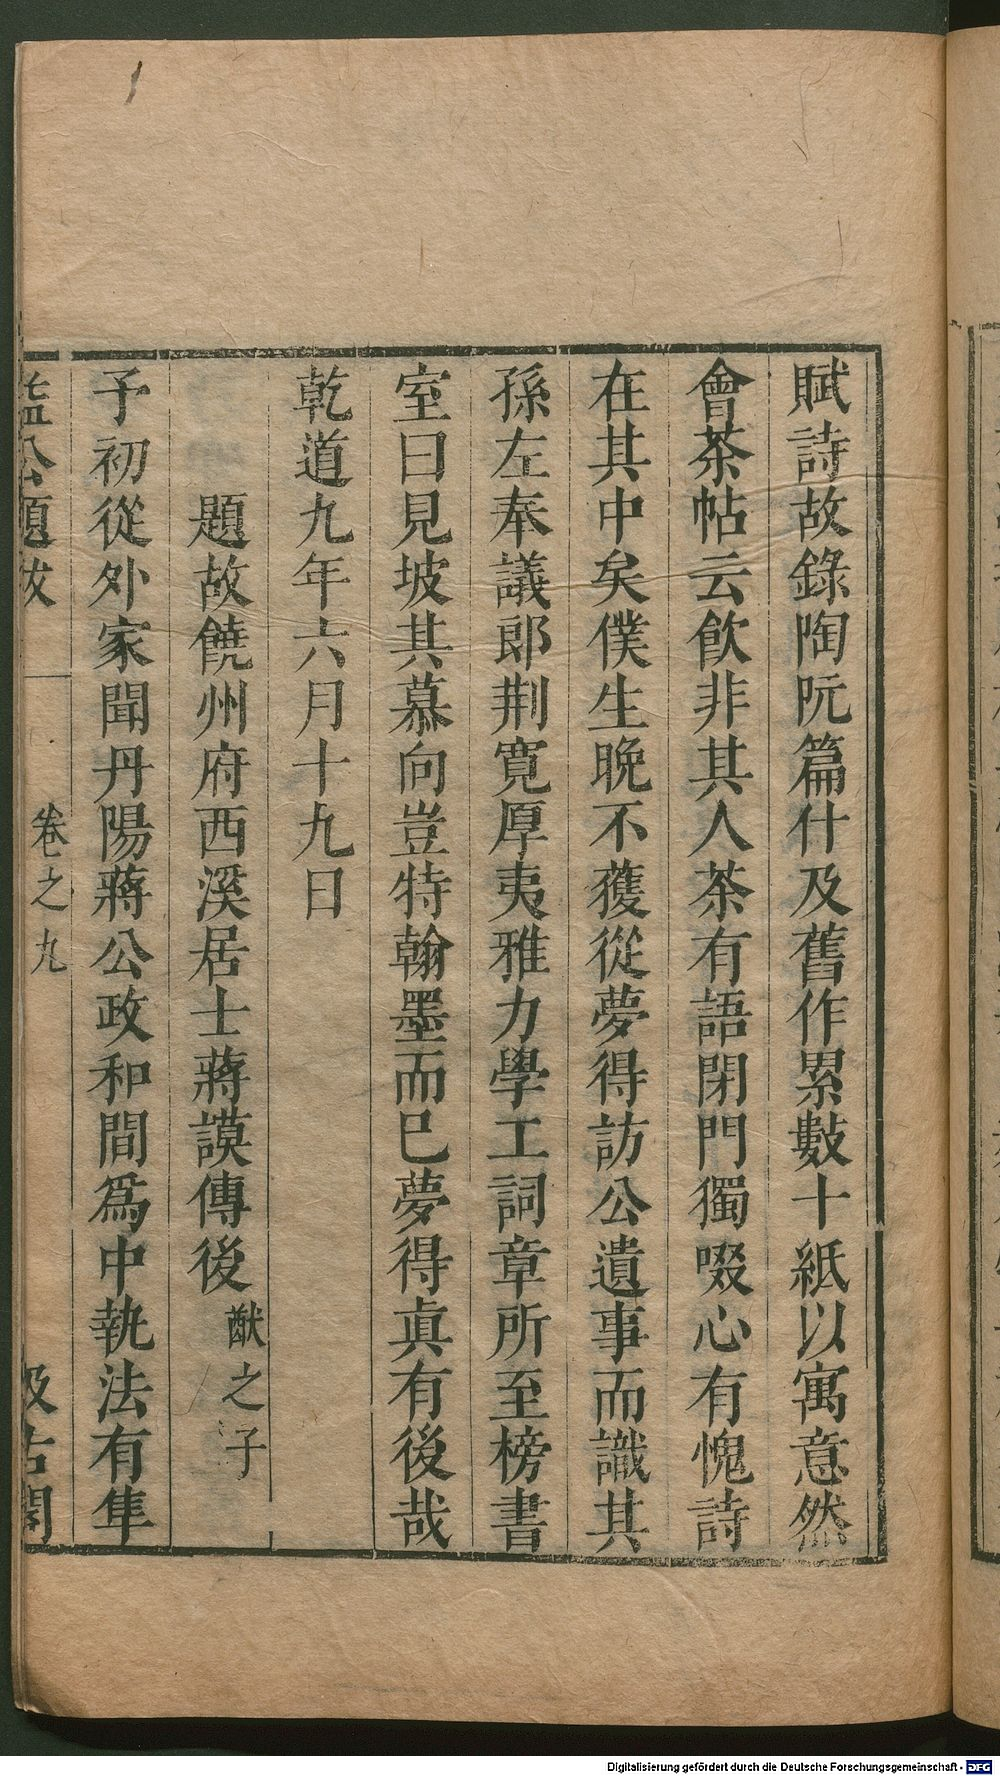 賦詩故錄陶阮篇什及舊作累數十紙以寓意然
會茶帖云飲非其人茶有語閉門獨啜心有愧詩
在其中矣僕生晚不獲從夢得訪公遺事而識其
孫左奉議郎荆寬厚夷雅力學工詞章所至榜書
室曰見坡其慕向豈特翰墨而已夢得眞有後哉
乾道九年六月十九日
題故饒州府西溪居士蔣謨傳後 猷之子
予初從外家聞丹陽蔣公政和間爲中執法有隼
益公題跋 卷之九 汲古閣
1
Digitalisierung gefördert durch die Deutsche Forschungsgemeinschaft - DFG